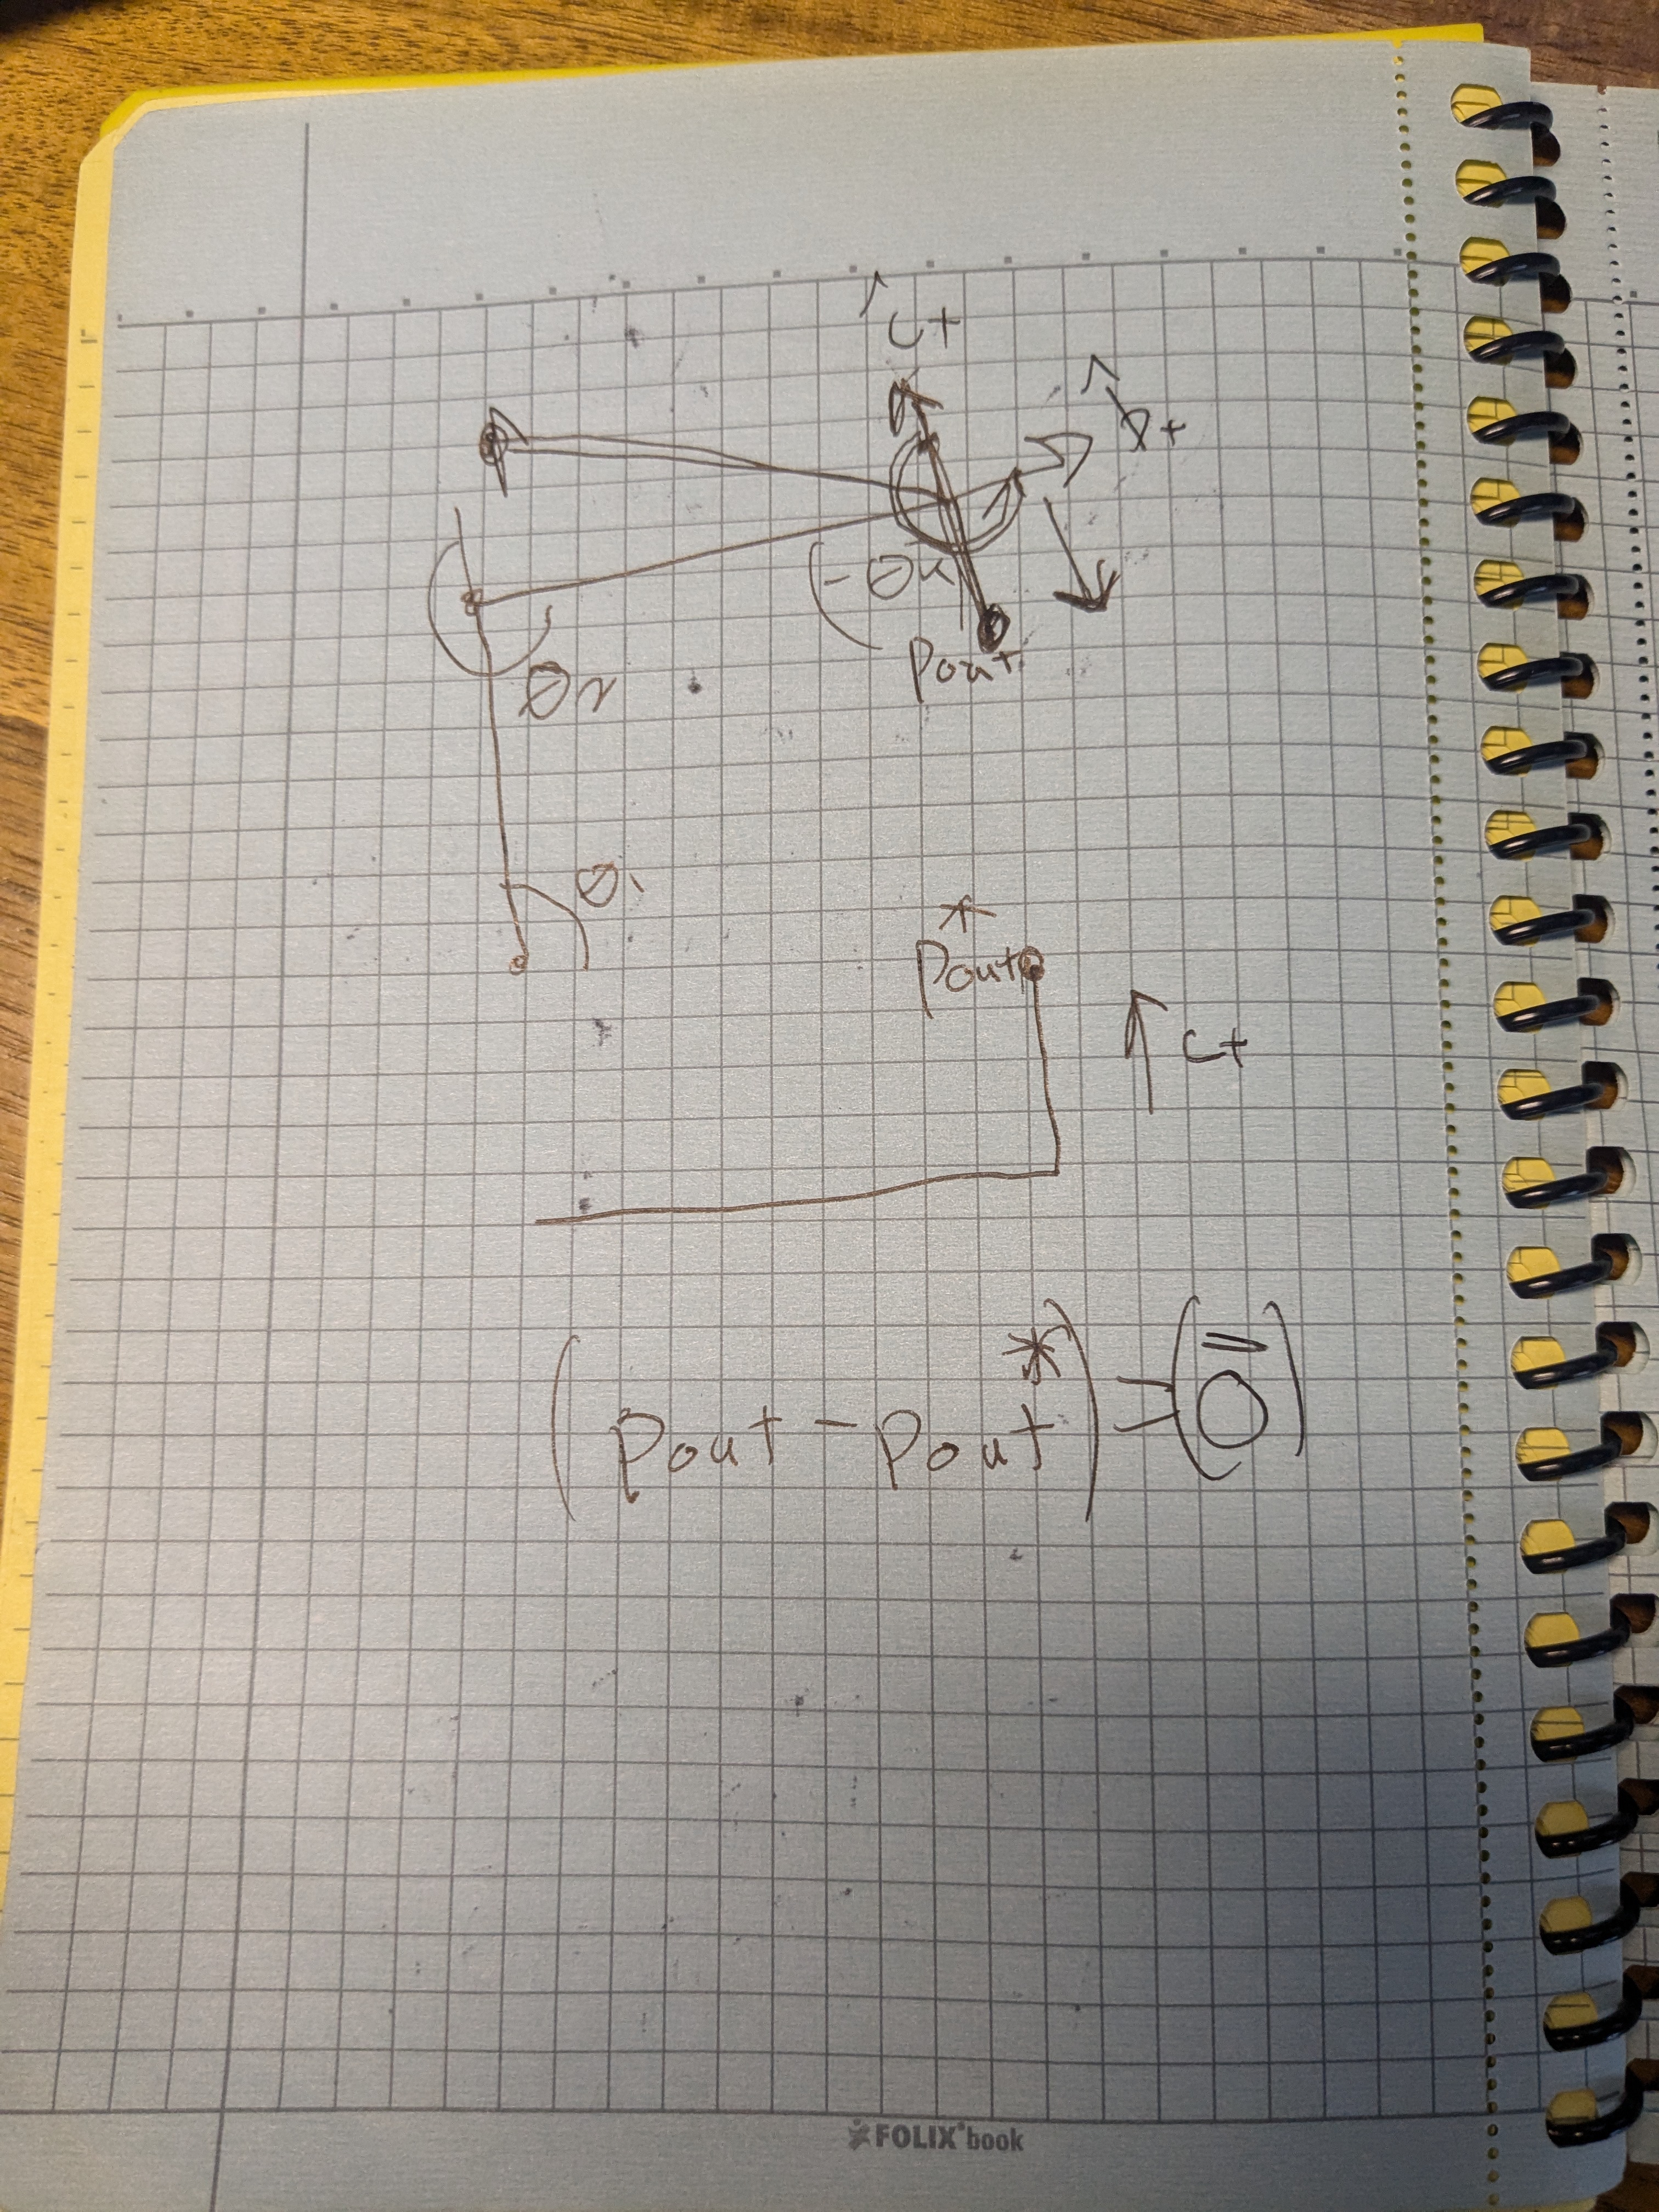 ^
c+
^
p+
(-θ
Pout
θ2
θ1
*
Pout
c+
(Pout - Pout*) = (0̿)
FOLIX®book